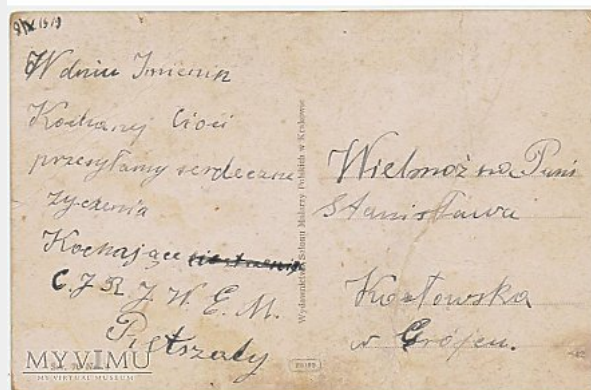 W dniu Imienin
Kochanej Cioci
przesyłamy serdeczne
życzenia
Kochające
C. J. R J. W. E. M.
Pietszaly
Wydawnictwo Salonu Malarzy Polskich w Krakowie
Wielmożna Pani
Stanisława
Kozłowska
w Grójcu.
MYVIMU
MY VIRTUAL MUSEUM